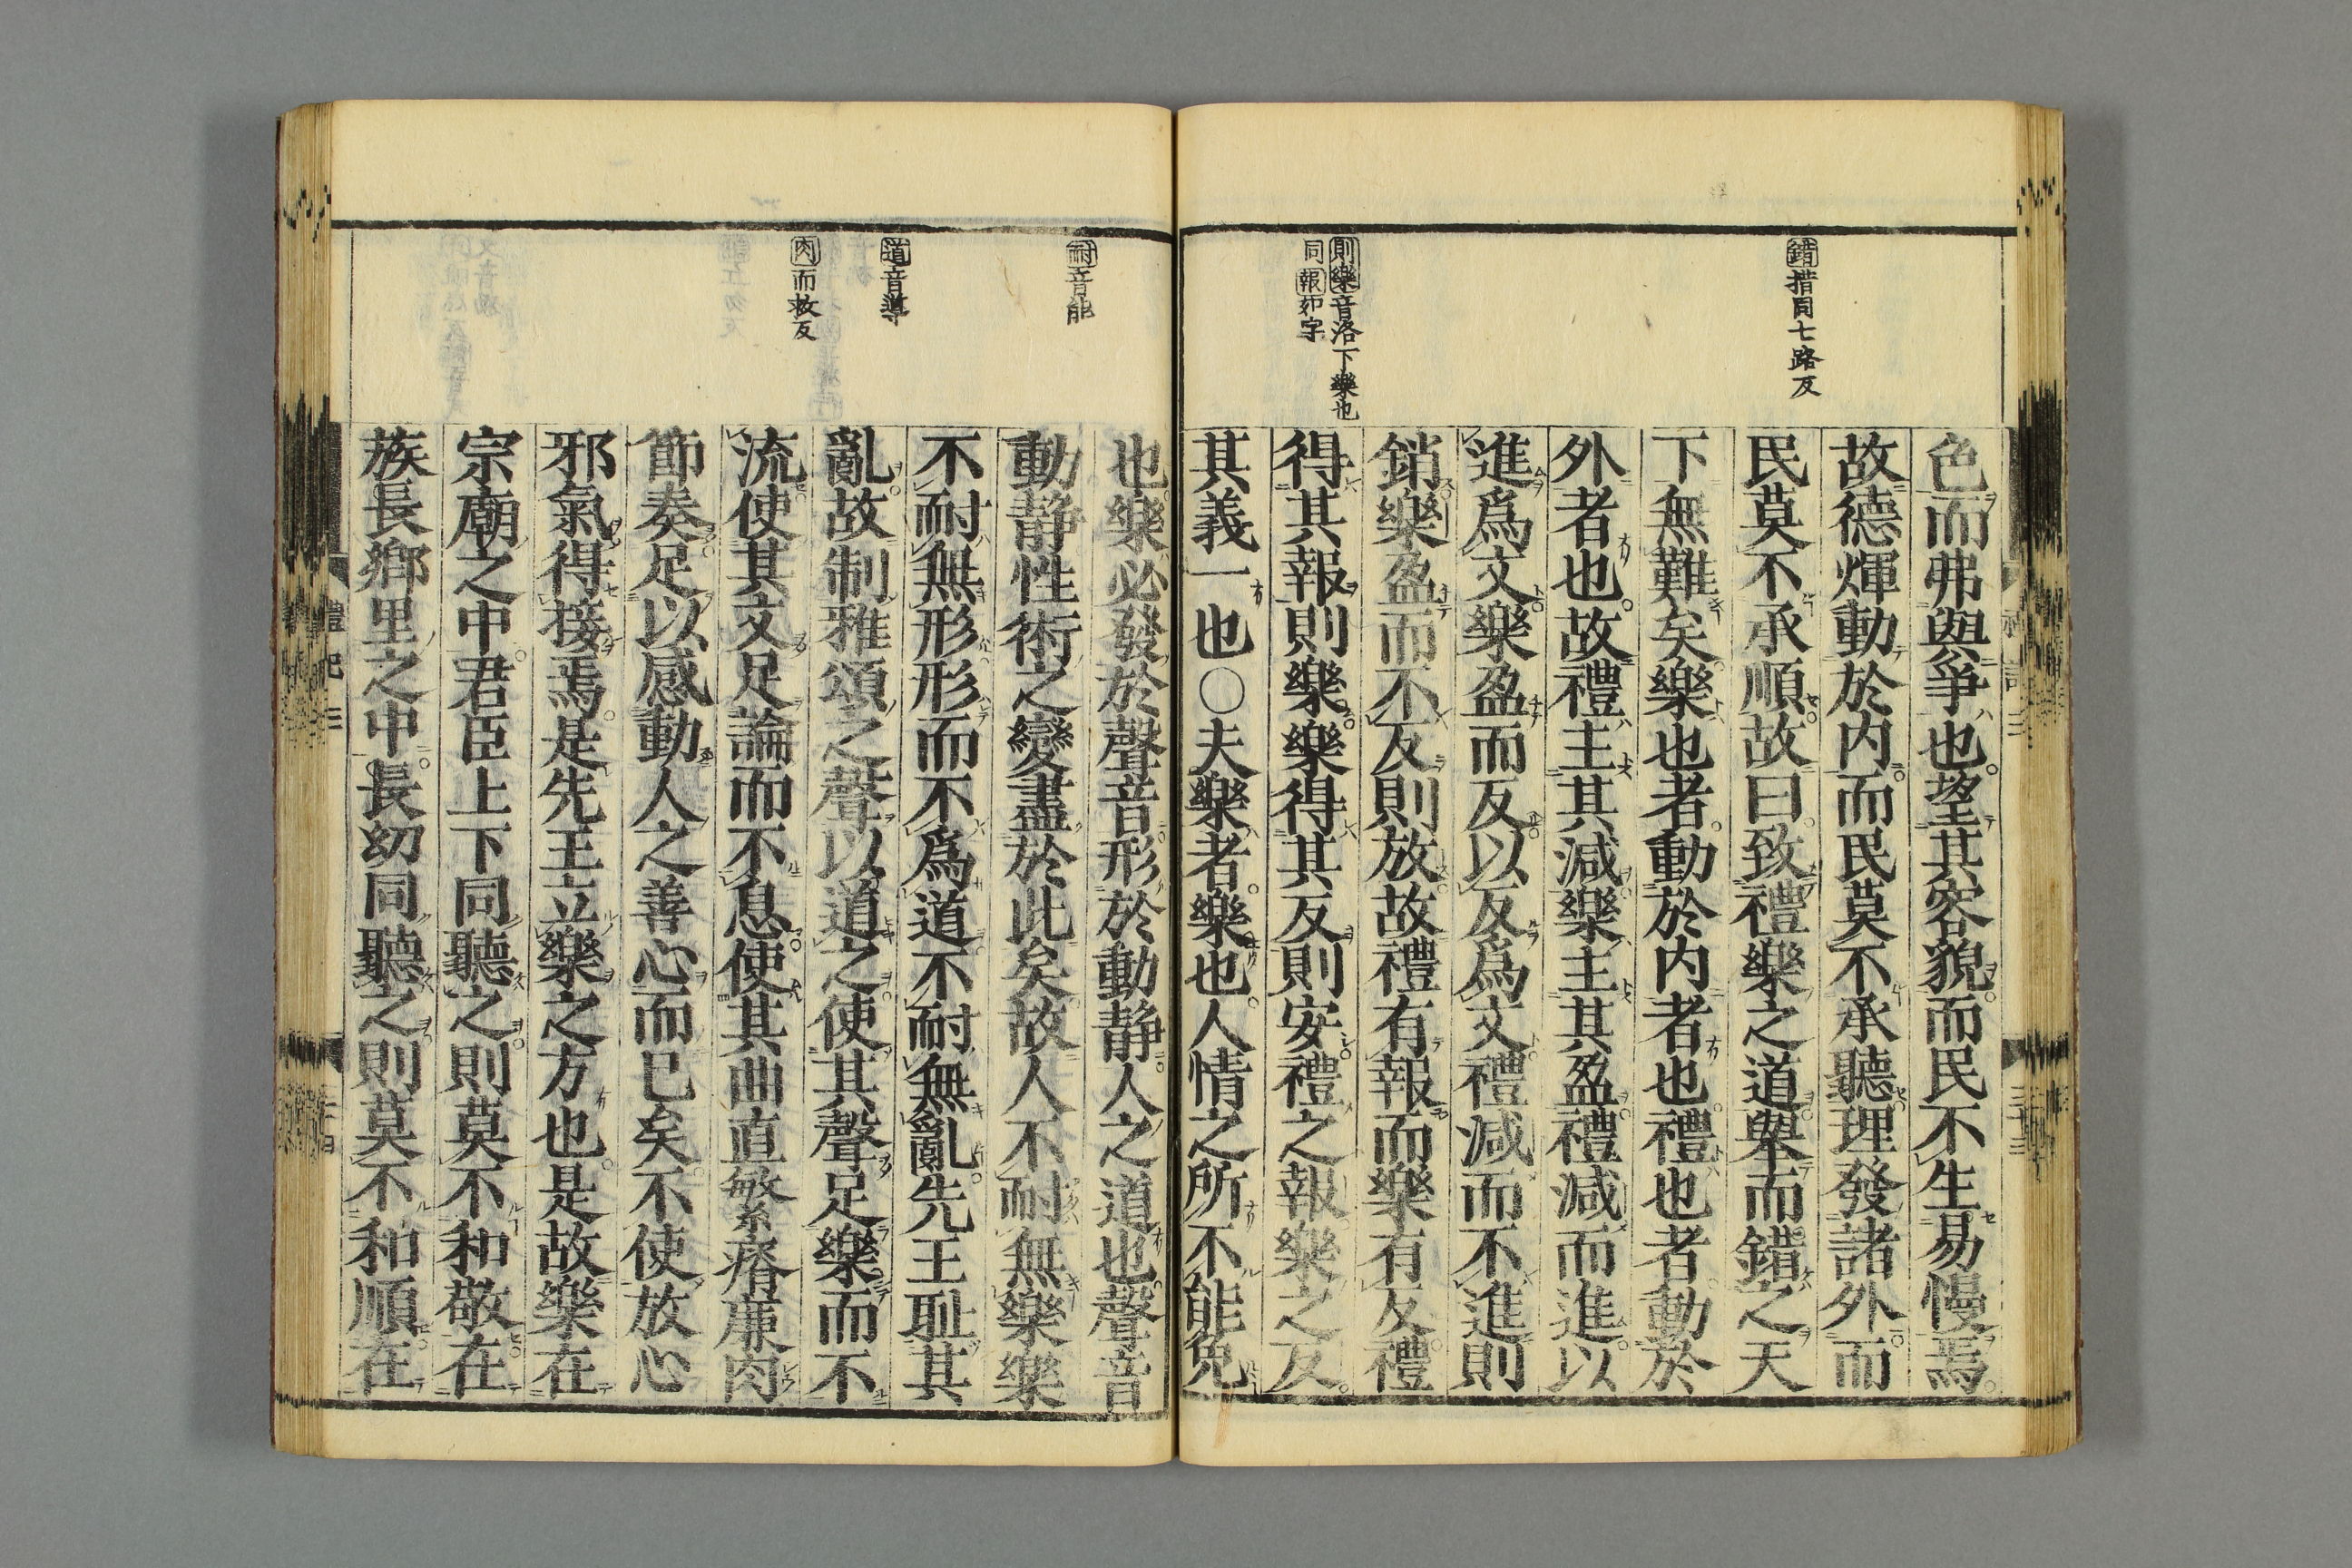 錯措同七路反
則樂音洛下樂也
同報如字
色而弗與爭也望其容貌而民不生易慢焉
故德煇動於内而民莫不承聽理發諸外而
民莫不承順故曰致禮樂之道舉而錯之天
下無難矣樂也者動於内者也禮也者動於
外者也故禮主其減樂主其盈禮減而進以
進爲文樂盈而反以反爲文禮減而不進則
銷樂盈而不反則放故禮有報而樂有反禮
得其報則樂樂得其反則安禮之報樂之反
其義一也○夫樂者樂也人情之所不能免
耐音能
道音導
肉而救反
也樂必發於聲音形於動静人之道也聲音
動静性術之變盡於此矣故人不耐無樂樂
不耐無形形而不爲道不耐無亂先王耻其
亂故制雅頌之聲以道之使其聲足樂而不
流使其文足論而不息使其曲直繁瘠廉肉
節奏足以感動人之善心而已矣不使放心
邪氣得接焉是先王立樂之方也是故樂在
宗廟之中君臣上下同聽之則莫不和敬在
族長鄉里之中長幼同聽之則莫不和順在
禮記三